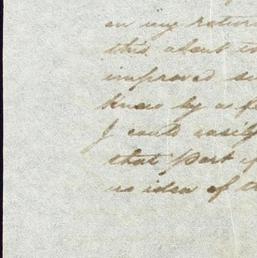 on my return
this about t
improved su
know by a f
I could easily
that part of
no idea of th